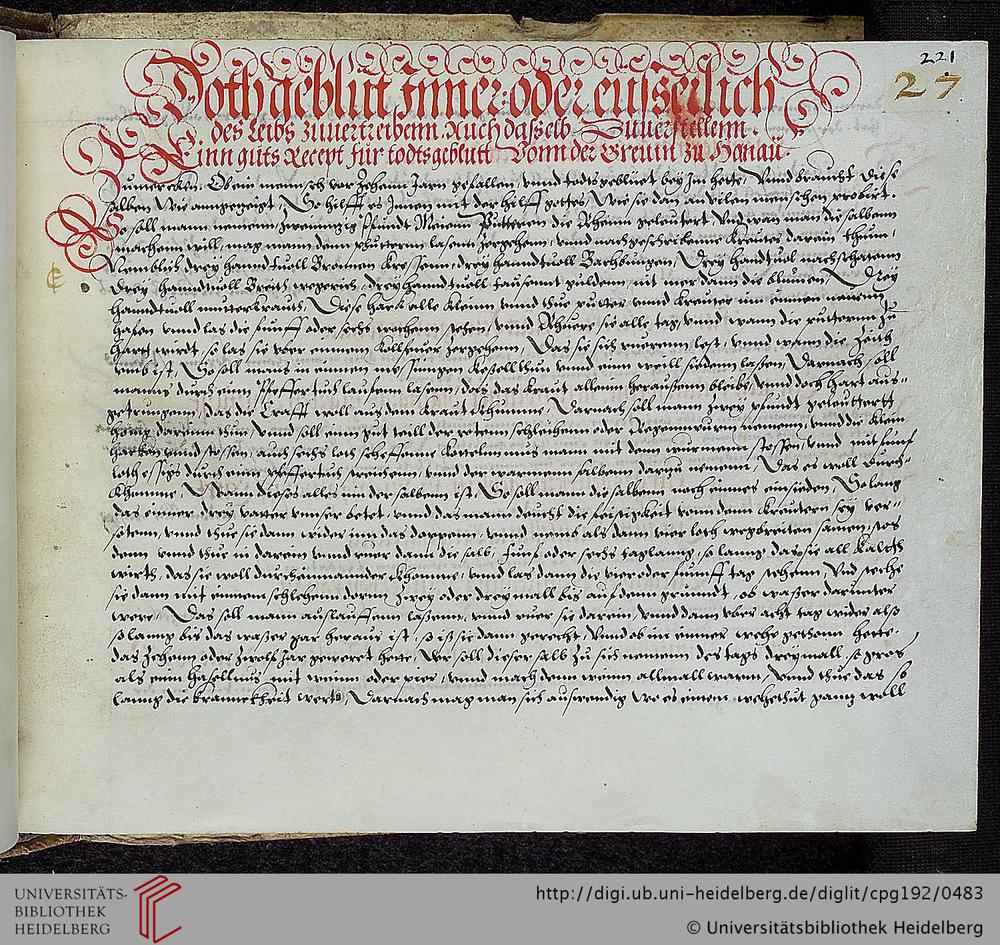 221
27
Toth geblüt Jnner: oder eusserlich
des Leibs zuuertreibenn Auch dasselb Zuuerstellenn
Einn guts Recept für todtsgeblutt Vonn der Greuin zu Hanau
Ob ein mensch vor Zehenn Jarn gefallen, vnnd todts gebluet bey Jm hette, Vnnd braucht diese
salben wie anngezeigt, So hilfft es Jmen mit der hilff gottes, wie sie dan an vilen menschen probirt.
So soll mann nemen, zwenntzig pfundt Meienn Putteren die Rhein geleutert Vnd wan man die salbenn
machenn will, mag mann denn putternn lasenn zergehenn, vnnd nachgeschribenne Kreutter darein thun,
drey hanndtuoll Bronnen Kressenn, drey hanndtuoll Bachbungen, Drey handtuol nachschatenn
Drey hanndtuoll Breith wegerich, drey handtuoll tausennt gulden, nit mer dann die blumen, Drey
handtuoll mutterkrauth, Diese hack alle kleinn vnnd thue putter vnnd kreutter inn einnen neuenn
hafen vnnd las die funff oder sechs wochenn stehen, vnnd Rhuere sie alle tag, vnnd wann die putternn zu
hartt wirdt so las sie vber einnem kollfeuer zergehenn, Das sie sich ruerenn lest, vnnd wann die Zeith
vmb ist, So soll mans in einnen messingen kesell thun vnnd einn weill siedenn lasen, Darnach soll
mans durch einn Pfeffertuch lauffenn lasenn, das das Kraut allein heraussenn bleibe, vnnd doch hart aus-
getrungenn, das die Crafft woll aus dem Kraut khumme, Darnach soll mann zwey pfundt geleuttertt
honig darinn thun, vnnd soll einn gut teill der rotenn schleichenn oder Regennwurm nemenn, vnnd die klein
hacken vnnd stossen, auch sechs loth mann mit denn wurmenn stossen, vnnd mit funf
loth essigs durch einn pfeffertuch streichenn, vnnd der warmenn salbenn darzu nemenn, Das es woll durch
khumme, Wann dieses alles inn der salbenn ist, So soll mann die salbenn noch einmes einsieden, So lang
das einner drey vatter vnnser betet, vnnd das mann deucht die feisigkeit vonn denn kreuttern sey ver-
sotenn, vnnd thue sie dann wider inn das doppenn, vnnd nemb als dann vier loth wegbreiten samen,
denn vnnd thue in darein vnnd ruer dann die salb, funf oder sechs tag lang, so lanng das sie all kalth
wirth, das sie woll durcheinnannder khomme, vnnd las dann die vier oder funff tag stehenn, Vnd steche
sie dann mit einnem schlehenn dornn zwey oder dreymall bis auf denn grundt, ob wasser darunter
were, Das soll mann auslauffenn lassenn, vnnd ruer sie darein, vnnd dann vber acht tag wider also
so lanng bis das wasser gar heraus ist, so ist sie dann gerecht, Vnnd ob im einner wehe gethonn hette,
das Zehenn oder zwolff Jar geweret hette, Der soll dieser salb zu sich nemenn des tags dreymall, so gros
als einn hasellnus, mit weinn oder vier, vnnd mach denn weinn allmall warm, Vnnd thue das so
lanng die kranckheit wertt, Darnach mag man sich auswendig wo es einem wehethut gantz woll
UNIVERSITÄTS-
BIBLIOTHEK
HEIDELBERG
http://digi.ub.uni-heidelberg.de/diglit/cpg192/0483
© Universitätsbibliothek Heidelberg